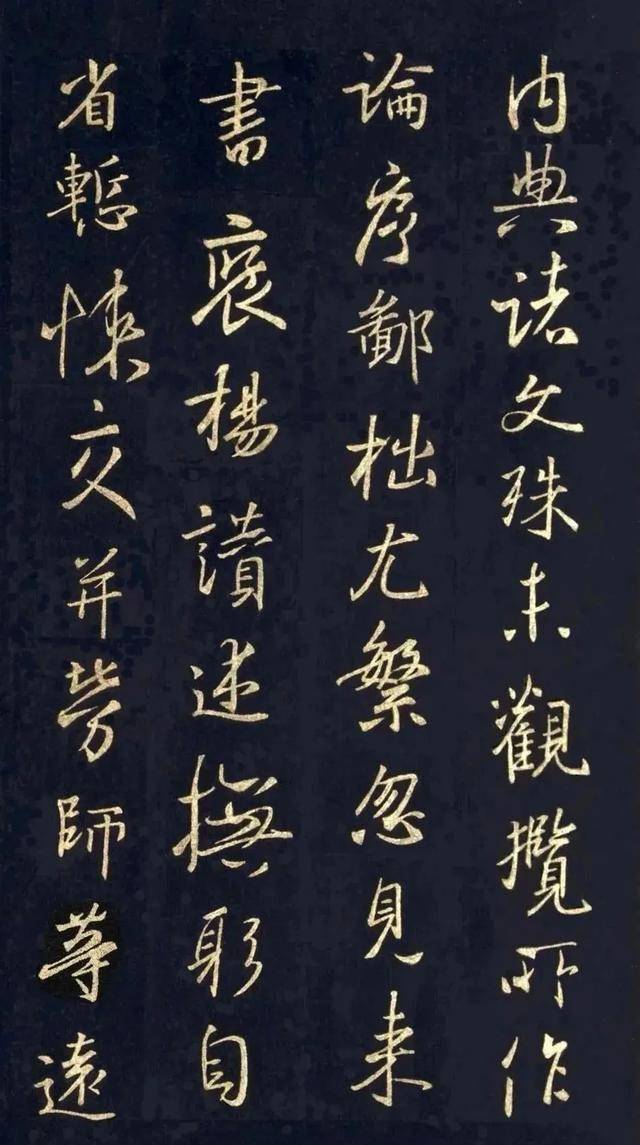 內典諸文殊未觀攬所作
論序鄙拙尤繁忽見来
書褒揚讃述撫躬自
省慙悚交并勞師等遠